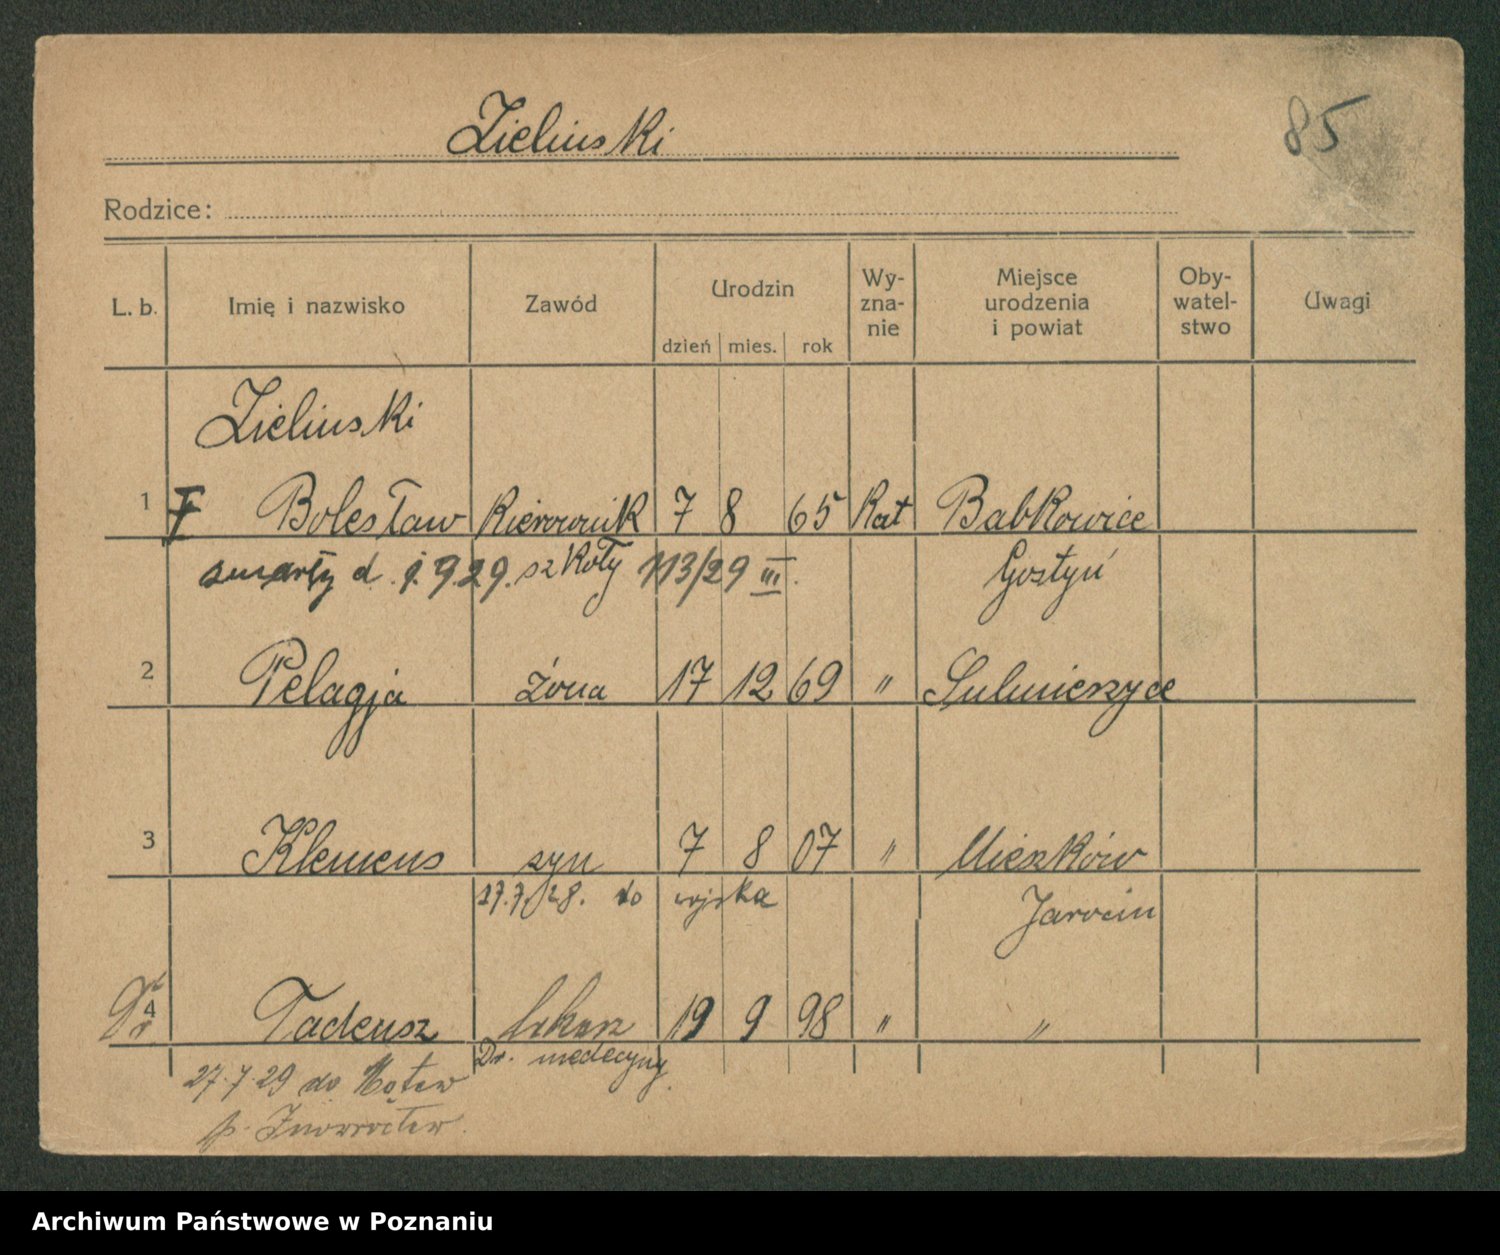 Zielinski
85
Rodzice:
L. b. Imię i nazwisko Zawód Urodzin dzień mies. rok Wy-zna-nie Miejsce urodzenia i powiat Oby-watel-stwo Uwagi
Zielinski
1 Bolesław Kierownik 7 8 65 Kat Babkowice
zmarły d. 1.9.29. szkoły 113/29 III. Gostyń
2 Pelagja żona 17 12 69 " Sulmierzyce
3 Klemens syn 7 8 07 " Mieszków
17.7.28. do wojska Jarocin
4 Tadeusz lekarz 19 9 98 " "
Dr. medecyny.
27.7.29 do Mątew
p. Inowrocław.
Archiwum Państwowe w Poznaniu